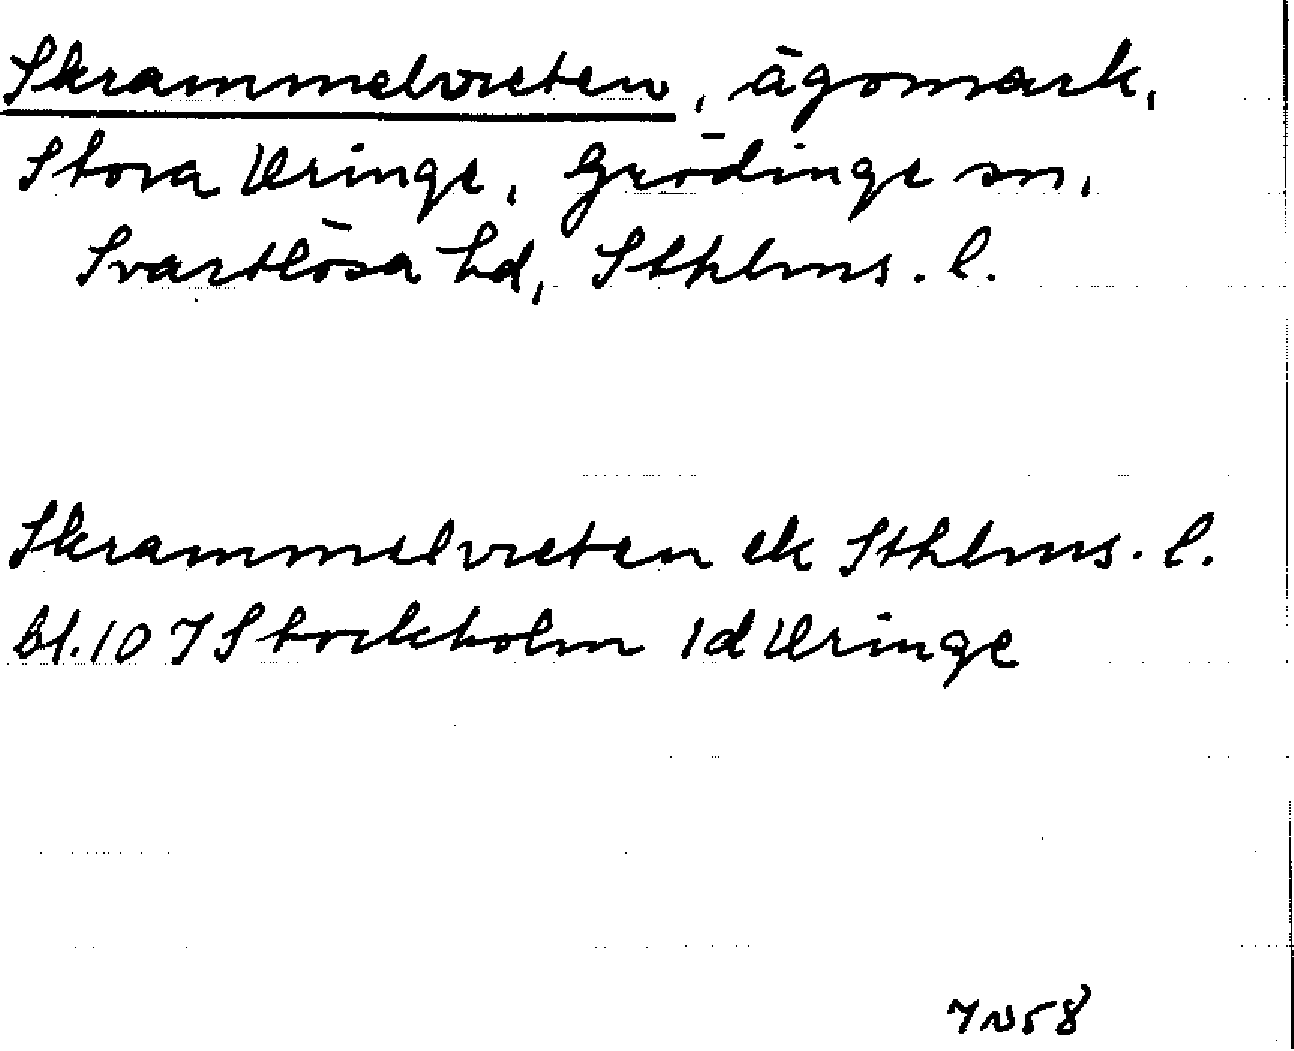 Skrammelvreten, ägomark,
Stora Uringe, Grödinge sn,
Svartlösa hd, Sthlms. l.
Skrammelvreten ek Sthlms. l.
bl. 10 I Stockholm 1d Uringe
IN58